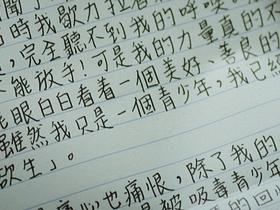 時我歇力拉
，完全聽不到我的呼喚
能放手！可是我的力量真的
能眼白白看着一個美好、善良的
雖然我只是一個青少年，我已經
欲生」。
心也痛恨，除了我的
被吸毒青少年
的回